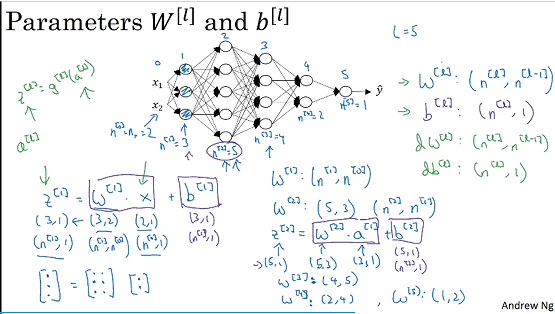 Parameters W^[l] and b^[l]
L=5
0 1 2 3 4 5
x₁
x₂
ŷ
n^[0]=n_x=2
n^[1]=3
n^[2]=5
n^[3]=4
n^[4]=2
n^[5]=1
z^[l]=g^[l](a^[l])
a^[l]
→ W^[l]: (n^[l], n^[l-1])
→ b^[l]: (n^[l], 1)
dW^[l]: (n^[l], n^[l-1])
db^[l]: (n^[l], 1)
z^[1] = W^[1] · x + b^[1]
(3,1) ← (3,2) (2,1) (3,1)
(n^[1],1) (n^[1],n^[0]) (n^[0],1) (n^[1],1)
W^[1]: (n^[1], n^[0])
W^[2]: (5,3) (n^[2], n^[1])
z^[2] = W^[2] · a^[1] + b^[2]
→ (5,1) (5,3) (3,1) (5,1)
(n^[2],1)
W^[3]: (4,5)
W^[4]: (2,4) , W^[5]: (1,2)
Andrew Ng